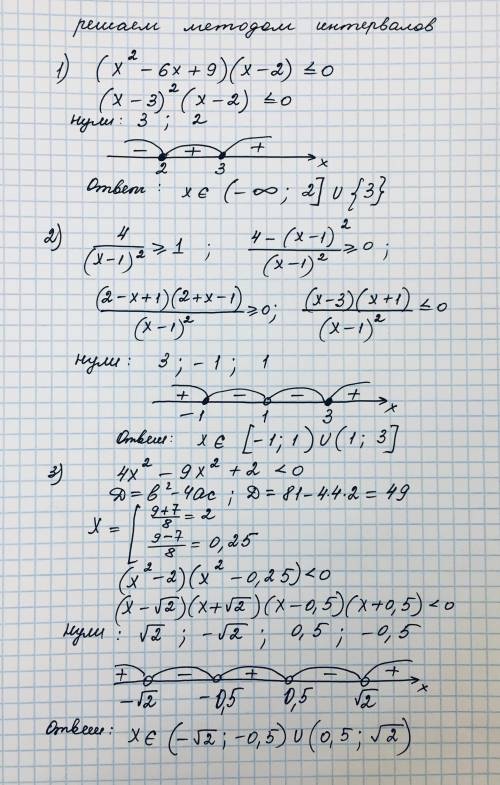 решаем методом интервалов
1) (x² - 6x + 9)(x - 2) ≤ 0
(x - 3)² (x - 2) ≤ 0
нули: 3 ; 2
- + +
2 3 x
Ответ: x ∈ (-∞; 2] ∪ {3}
2) 4/(x-1)² ≥ 1 ; (4 - (x-1)²)/(x-1)² ≥ 0 ;
((2-x+1)(2+x-1))/(x-1)² ≥ 0; ((x-3)(x+1))/(x-1)² ≤ 0
нули: 3 ; -1 ; 1
+ - - +
-1 1 3 x
Ответ: x ∈ [-1; 1) ∪ (1; 3]
3) 4x² - 9x² + 2 < 0
Д = в² - 4ac ; Д = 81 - 4·4·2 = 49
x = [ (9+7)/8 = 2
(9-7)/8 = 0,25
(x² - 2)(x² - 0,25) < 0
(x - √2)(x + √2)(x - 0,5)(x + 0,5) < 0
нули: √2 ; -√2 ; 0,5 ; -0,5
+ - + - +
-√2 -0,5 0,5 √2 x
Ответ: x ∈ (-√2; -0,5) ∪ (0,5; √2)